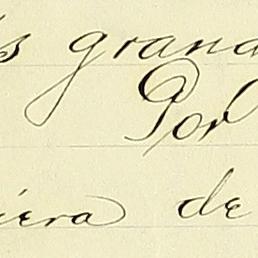 s grand
Por
iera de